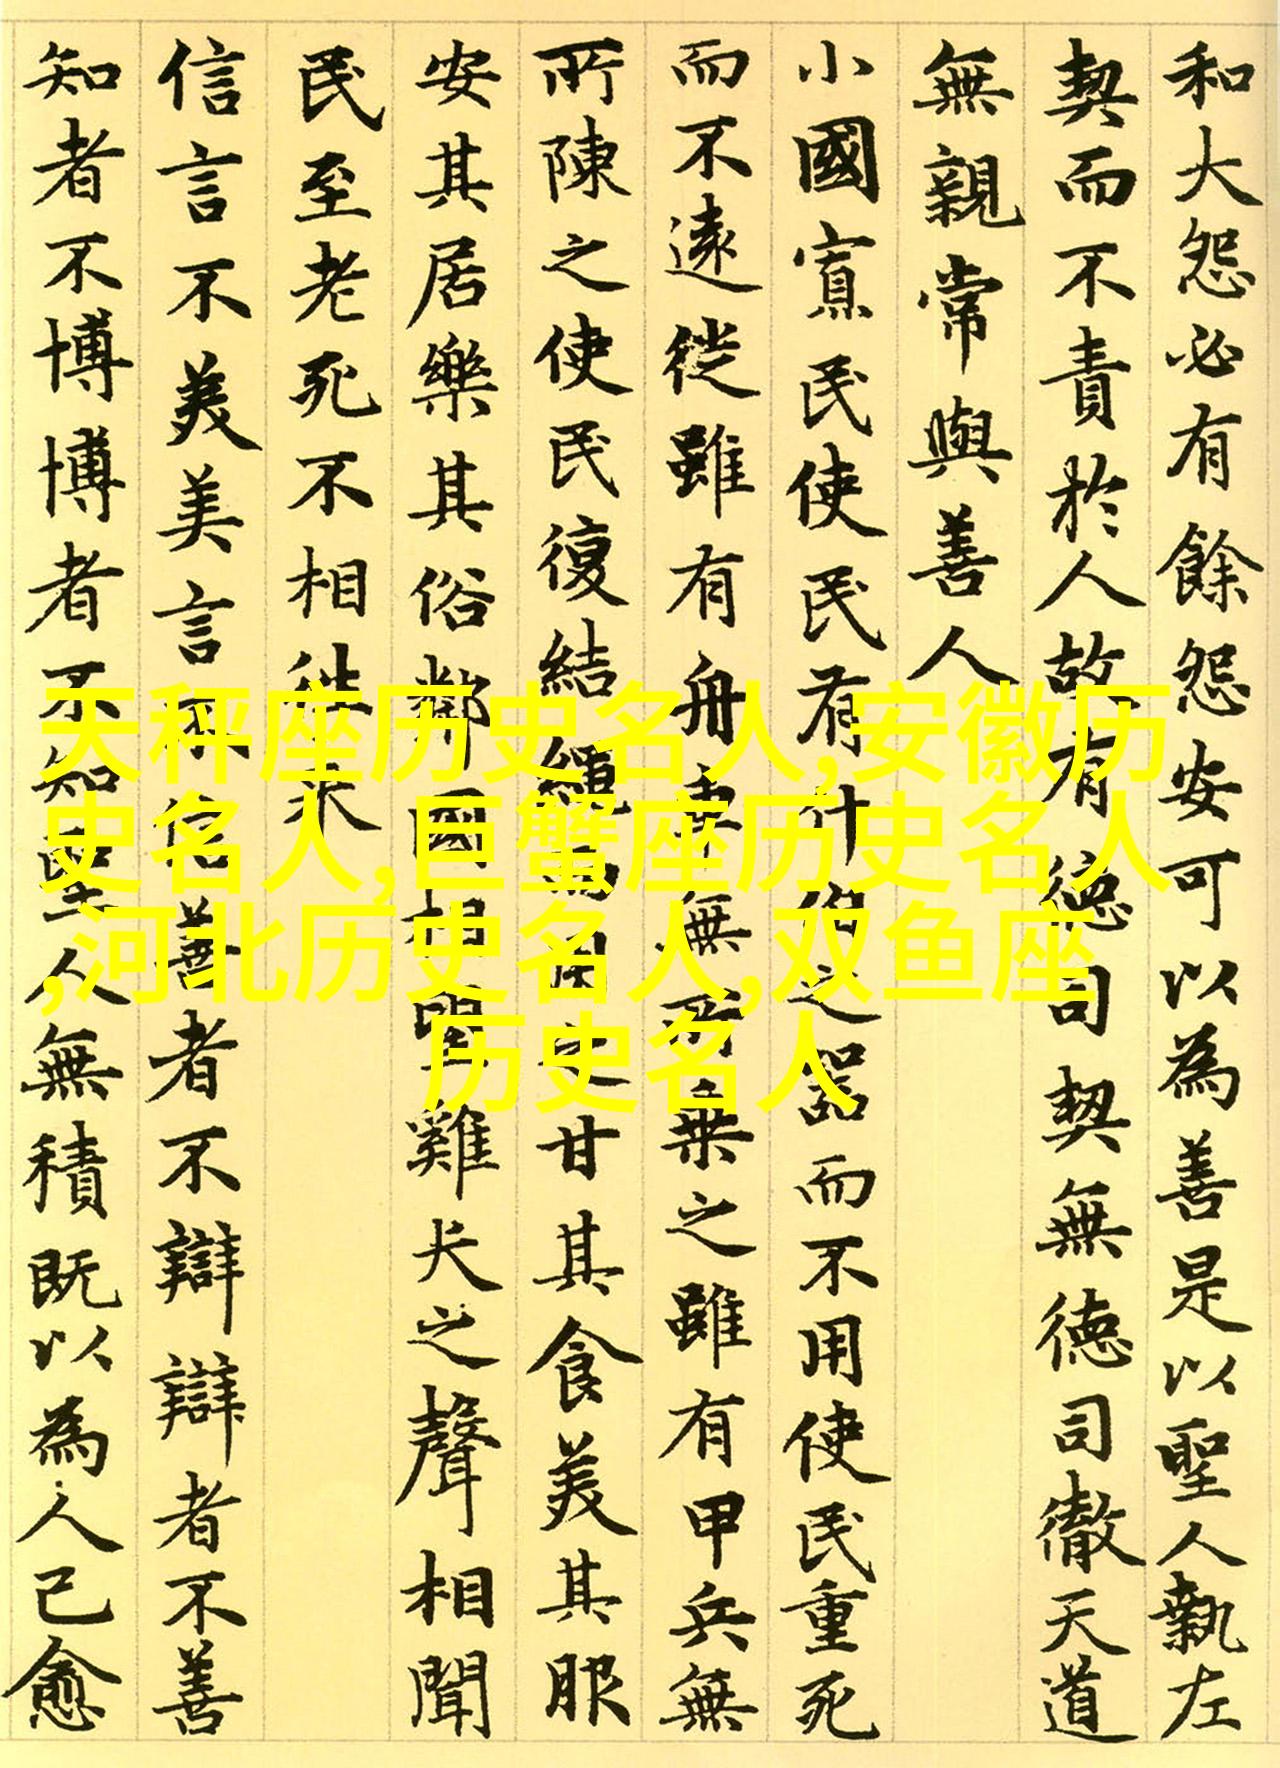 和大怨必有餘怨安可以為善是以聖人執左
契而不責於人故有德司契無德司徹天道
無親常與善人
小國寡民使民有什伯之器而不用使民重死
而不遠徙雖有舟車無所乗之雖有甲兵無
所陳之使民復結繩而用之甘其食美其服
安其居樂其俗鄰國相望雞犬之聲相聞
民至老死不相往来
信言不美美言不信善者不辯辯者不善
知者不博博者不知聖人無積既以為人己愈
天秤座历史名人,安徽历
史名人,巨蟹座历史名人
,河北历史名人,双鱼座
历史名人